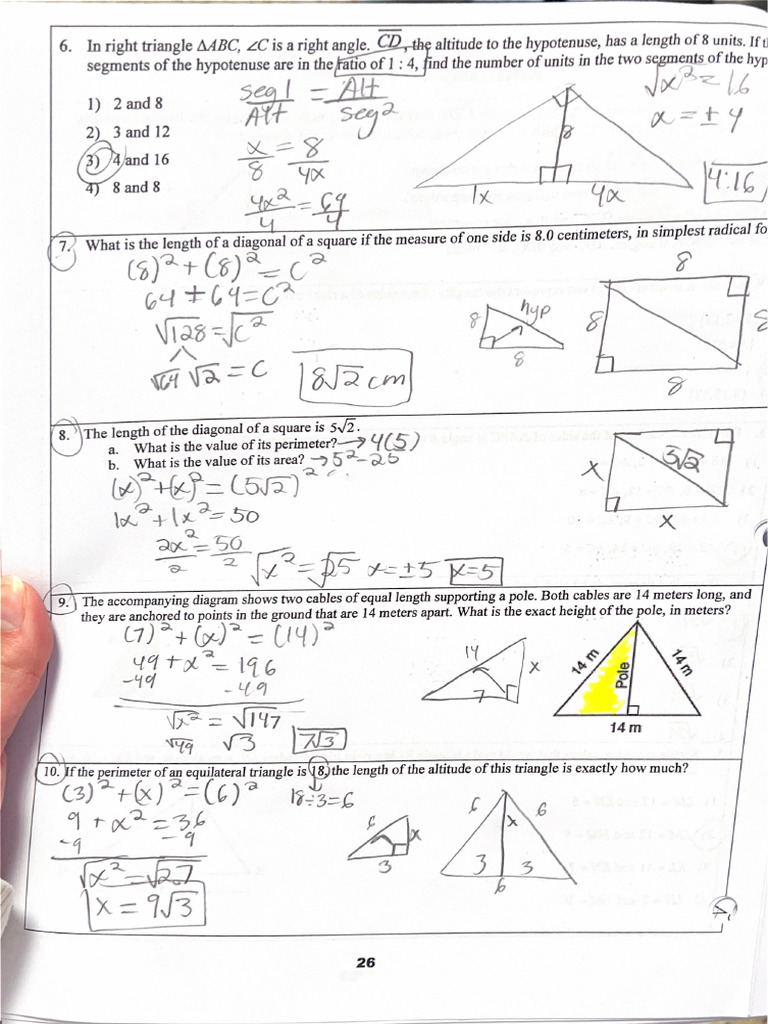 6. In right triangle ΔABC, ∠C is a right angle. CD, the altitude to the hypotenuse, has a length of 8 units. If t
segments of the hypotenuse are in the ratio of 1 : 4, find the number of units in the two segments of the hyp
1) 2 and 8
2) 3 and 12
3) 4 and 16
4) 8 and 8
seg1/Alt = Alt/seg2
x/8 = 8/4x
4x²/4 = 64/4
8
1x 4x
√x² = 16
x = ± 4
4:16
7. What is the length of a diagonal of a square if the measure of one side is 8.0 centimeters, in simplest radical fo
(8)² + (8)² = c²
64 + 64 = c²
√128 = √c²
√64 √2 = c
8√2 cm
8 hyp
8
8
8 8
8
8. The length of the diagonal of a square is 5√2.
a. What is the value of its perimeter? → 4(5)
b. What is the value of its area? → 5² = 25
(x)² + (x)² = (5√2)²
1x² + 1x² = 50
2x²/2 = 50/2
√x² = √25 x = ±5 x = 5
5√2
x
x
9. The accompanying diagram shows two cables of equal length supporting a pole. Both cables are 14 meters long, and
they are anchored to points in the ground that are 14 meters apart. What is the exact height of the pole, in meters?
(7)² + (x)² = (14)²
49 + x² = 196
-49 -49
√x² = √147
√49 √3 7√3
14 x
7
14 m Pole 14 m
14 m
10. If the perimeter of an equilateral triangle is 18, the length of the altitude of this triangle is exactly how much?
(3)² + (x)² = (6)² 18÷3=6
9 + x² = 36
-9 -9
√x² = √27
x = 9√3
6 x
3
6 x 6
3 3
6
26